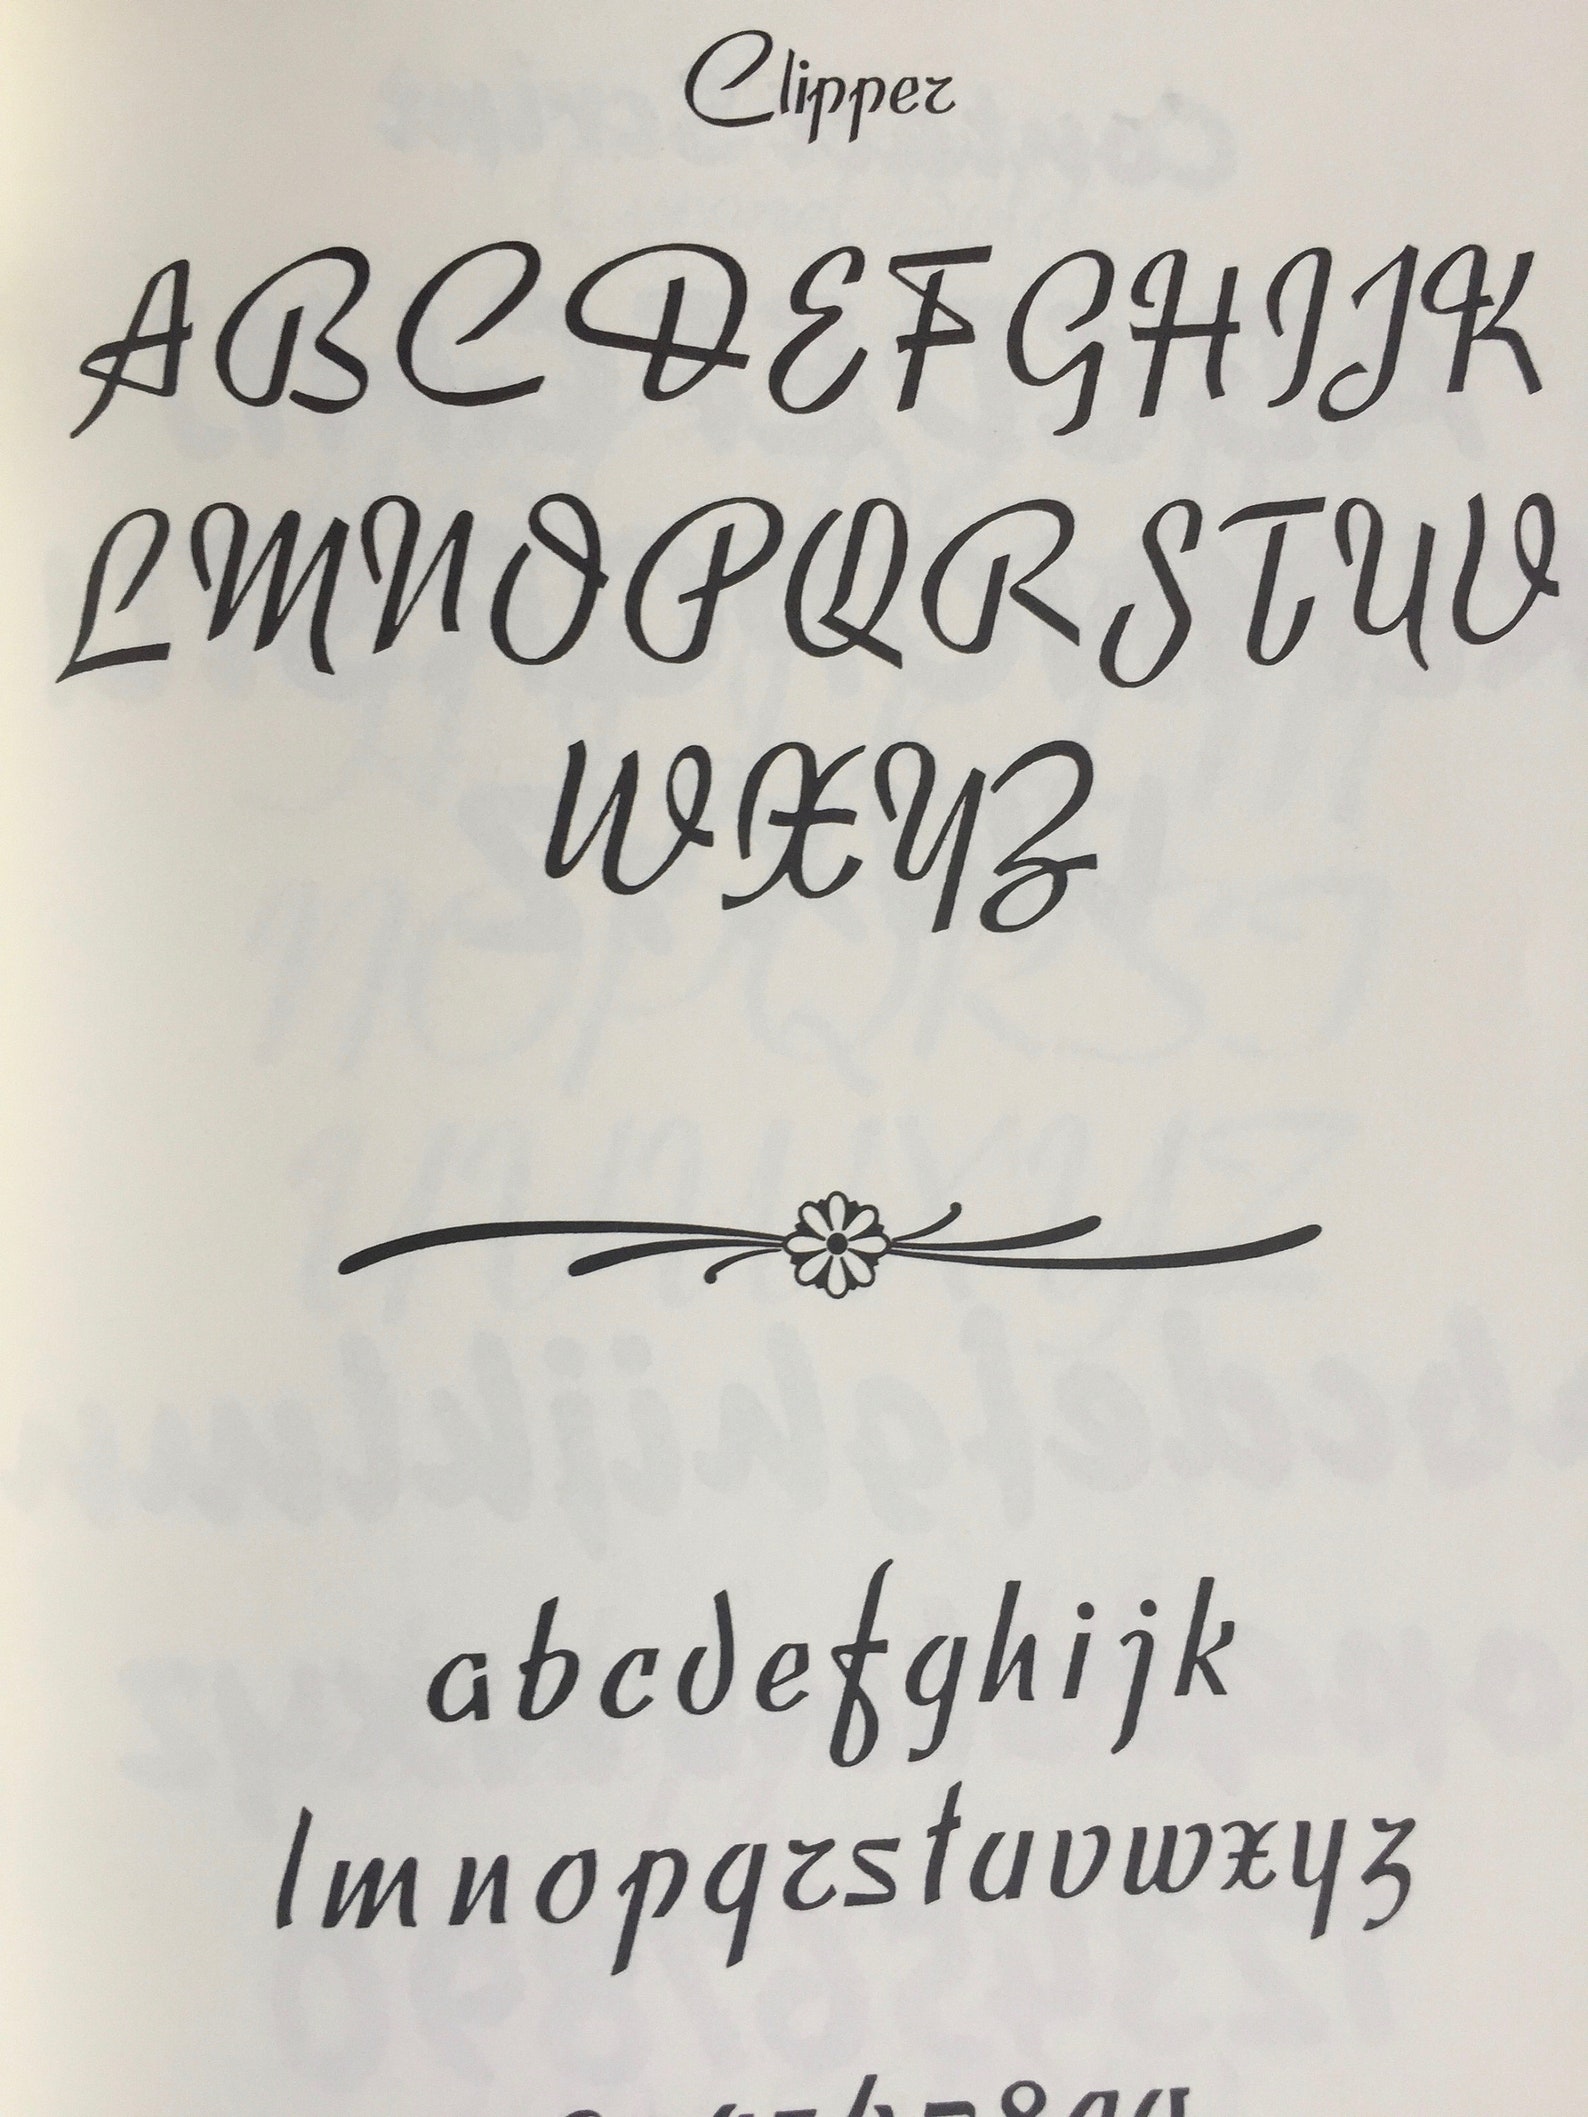 Clipper
ABCDEFGHIJK
LMNOPQRSTUV
WXYZ
abcdefghijk
lmnopqrstuvwxyz